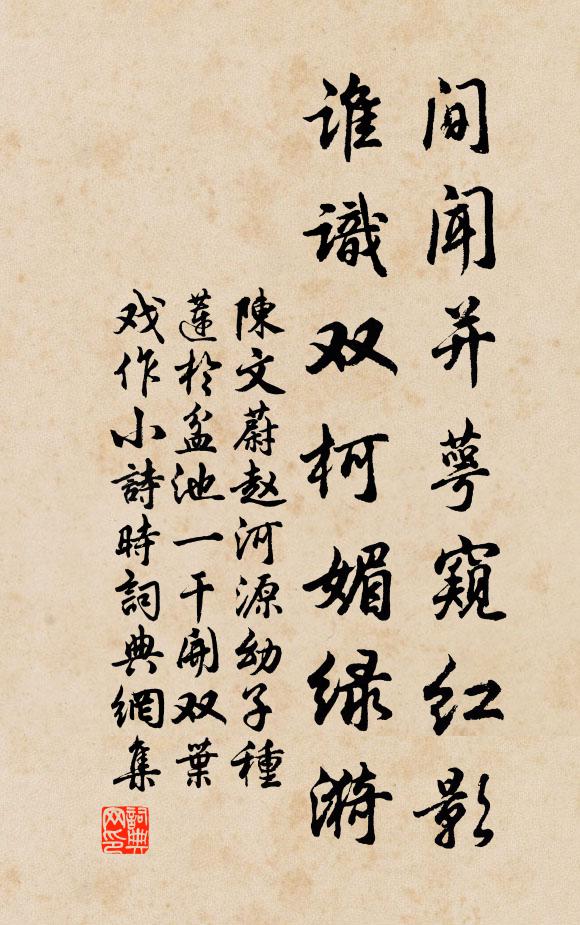 间闻并萼窥红影
谁識双柯媚绿漪
陳文蔚赵河源幼子種
莲於盆池一干開双葉
戏作小詩時詞典網集
詞典
网印